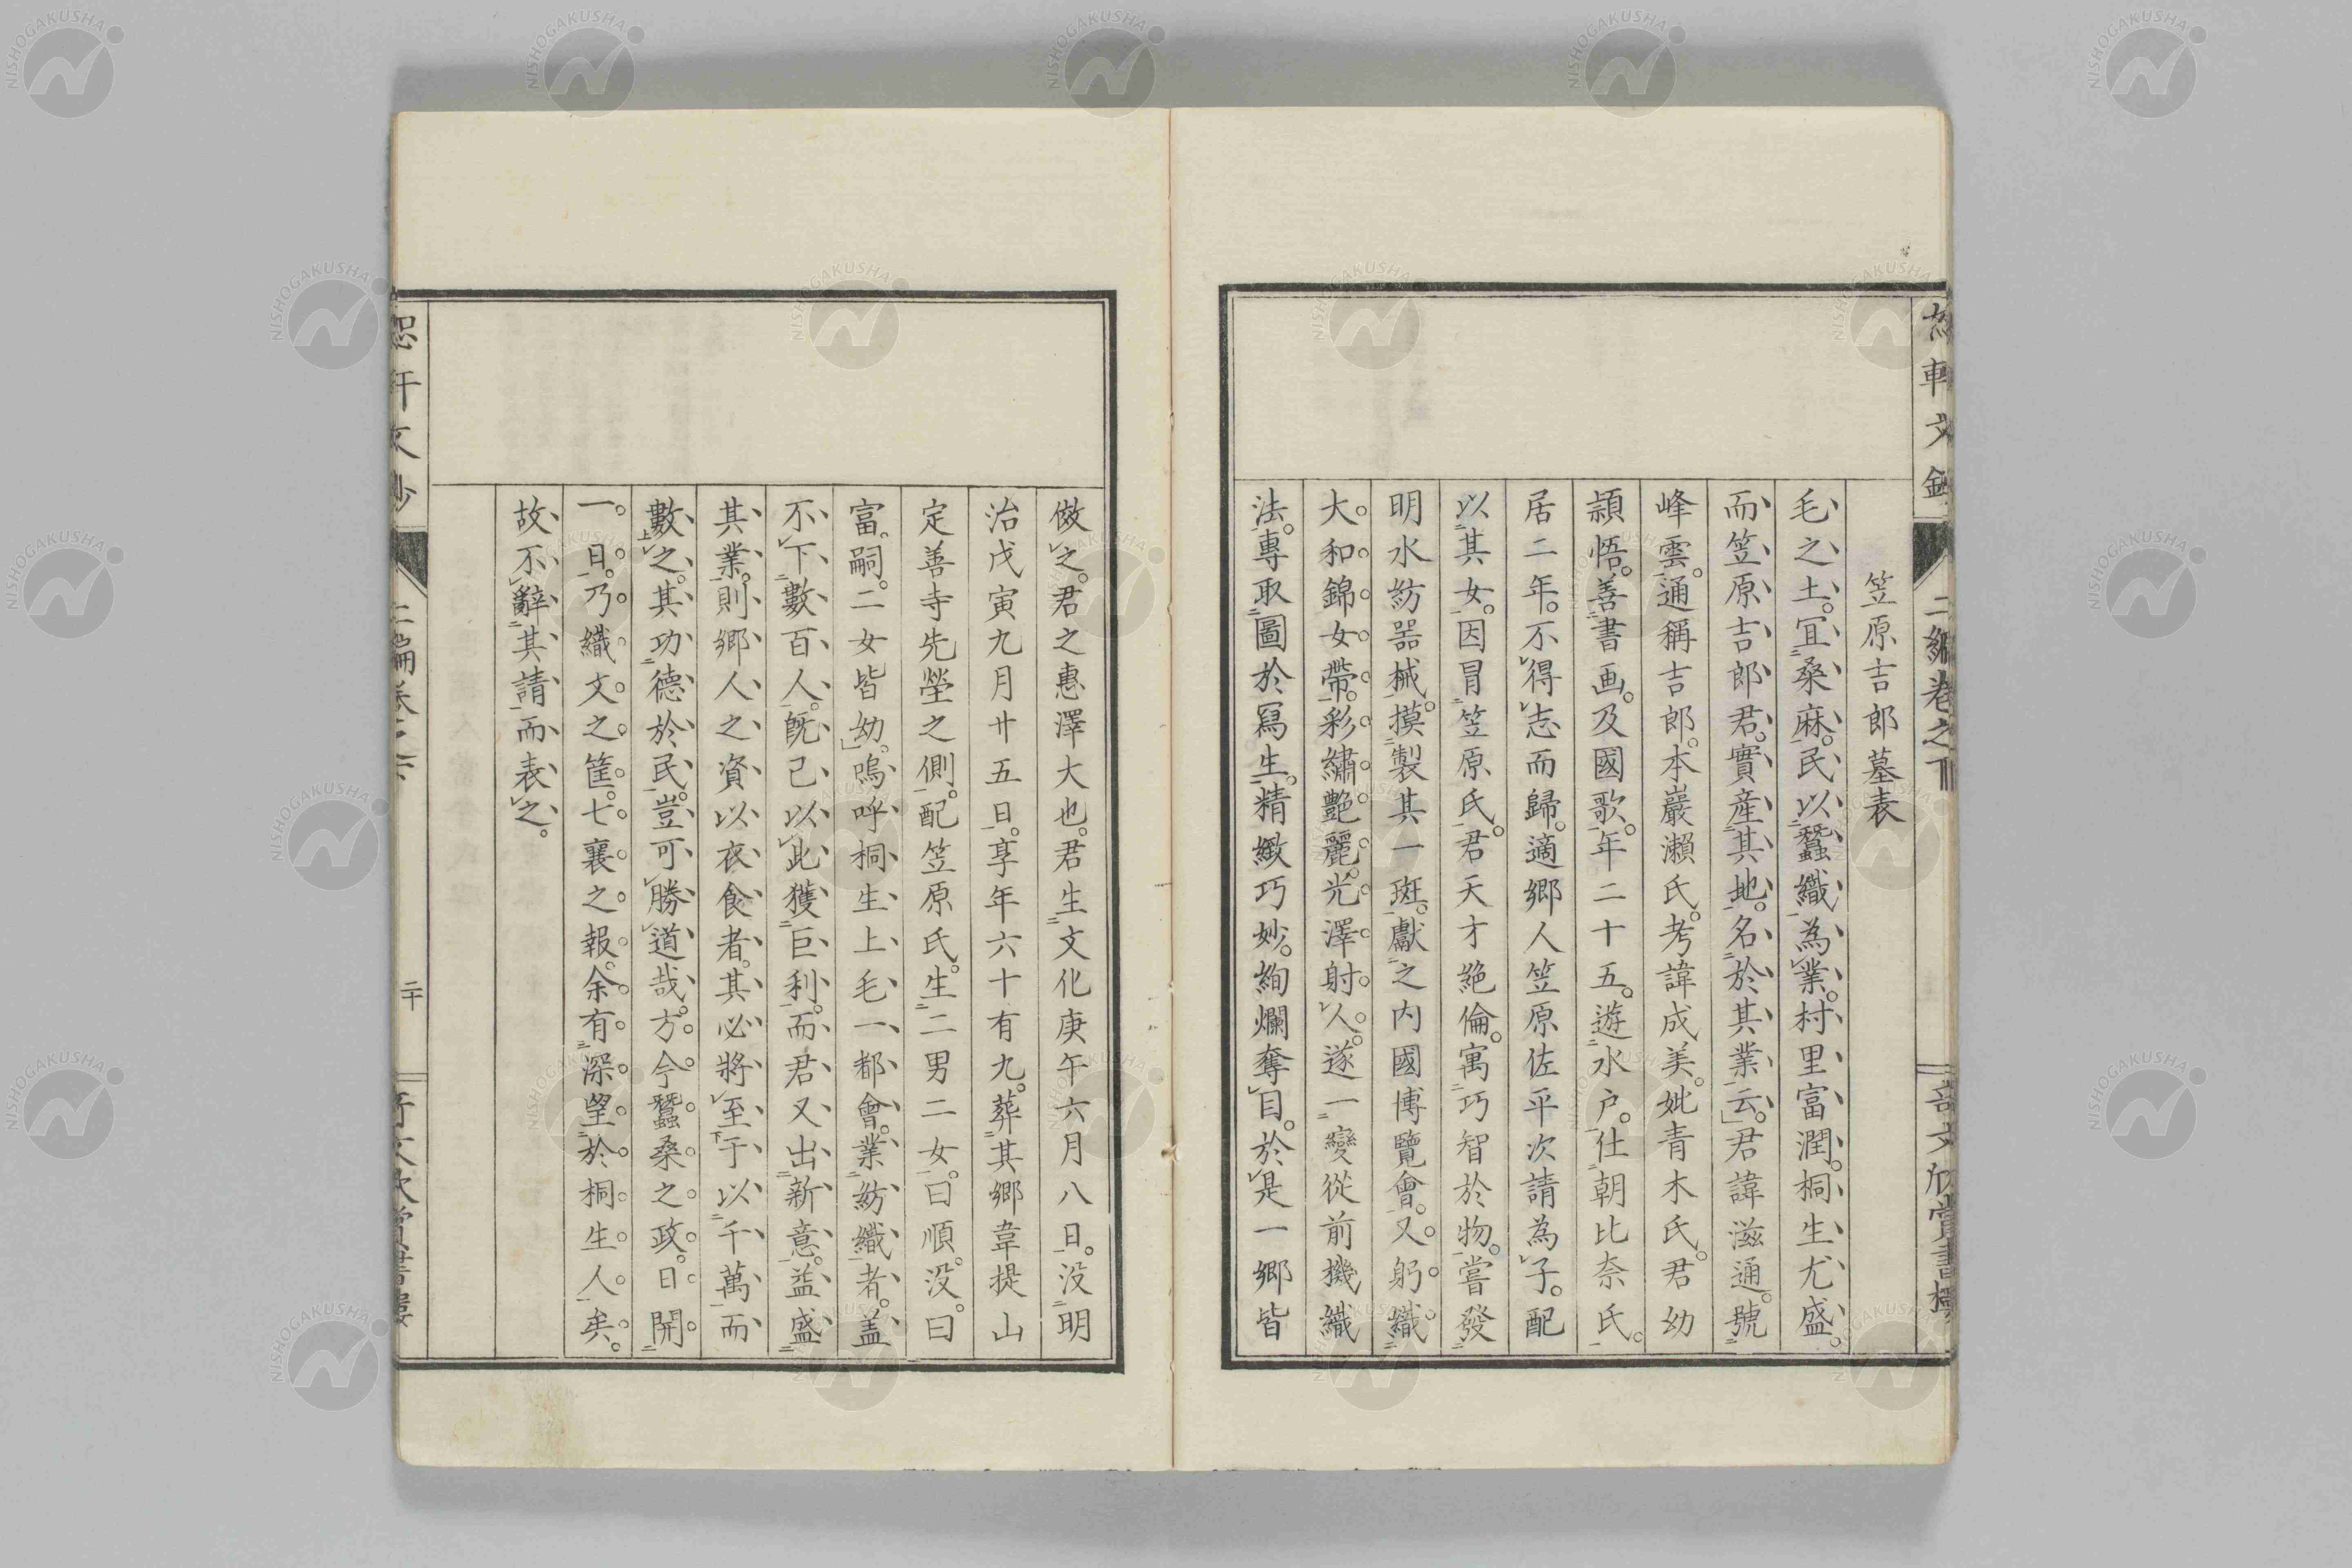 笠原吉郎墓表
毛之土。冝桑麻。民以蠶織為業。村里富潤。桐生尤盛。
而笠原吉郎君。實産其地。名於其業云。君諱滋通。號
峰雲。通稱吉郎。本巖瀬氏。考諱成美。妣青木氏。君幼
頴悟。善書画。及國歌。年二十五。遊水戸。仕朝比奈氏。
居二年。不得志而歸。適郷人笠原佐平次請為子。配
以其女。因冒笠原氏。君天才絶倫。寓巧智於物。嘗發
明水紡器械。摸製其一斑。獻之内國博覽會。又躬織
大和錦女帶。彩繡艷麗。光澤射人。遂一變從前機織
法。專取圖於寫生。精緻巧妙。絢爛奪目。於是一郷皆
倣之。君之惠澤大也。君生文化庚午六月八日。没明
治戊寅九月廿五日。享年六十有九。葬其郷韋提山
定善寺先塋之側。配笠原氏。生二男二女。曰順。没。曰
富。嗣。二女皆幼。嗚呼桐生上毛一都會。業紡織者。盖
不下數百人。旣已以此獲巨利。而君又出新意。益盛
其業。則郷人之資以衣食者。其必將至于以千萬而
數之。其功德於民。豈可勝道哉。方今蠶桑之政。日開
一日。乃織文之筐。七襄之報。余有深望於桐生人矣。
故不辭其請而表之。
二編卷之下
二十
NISHOGAKUSHA